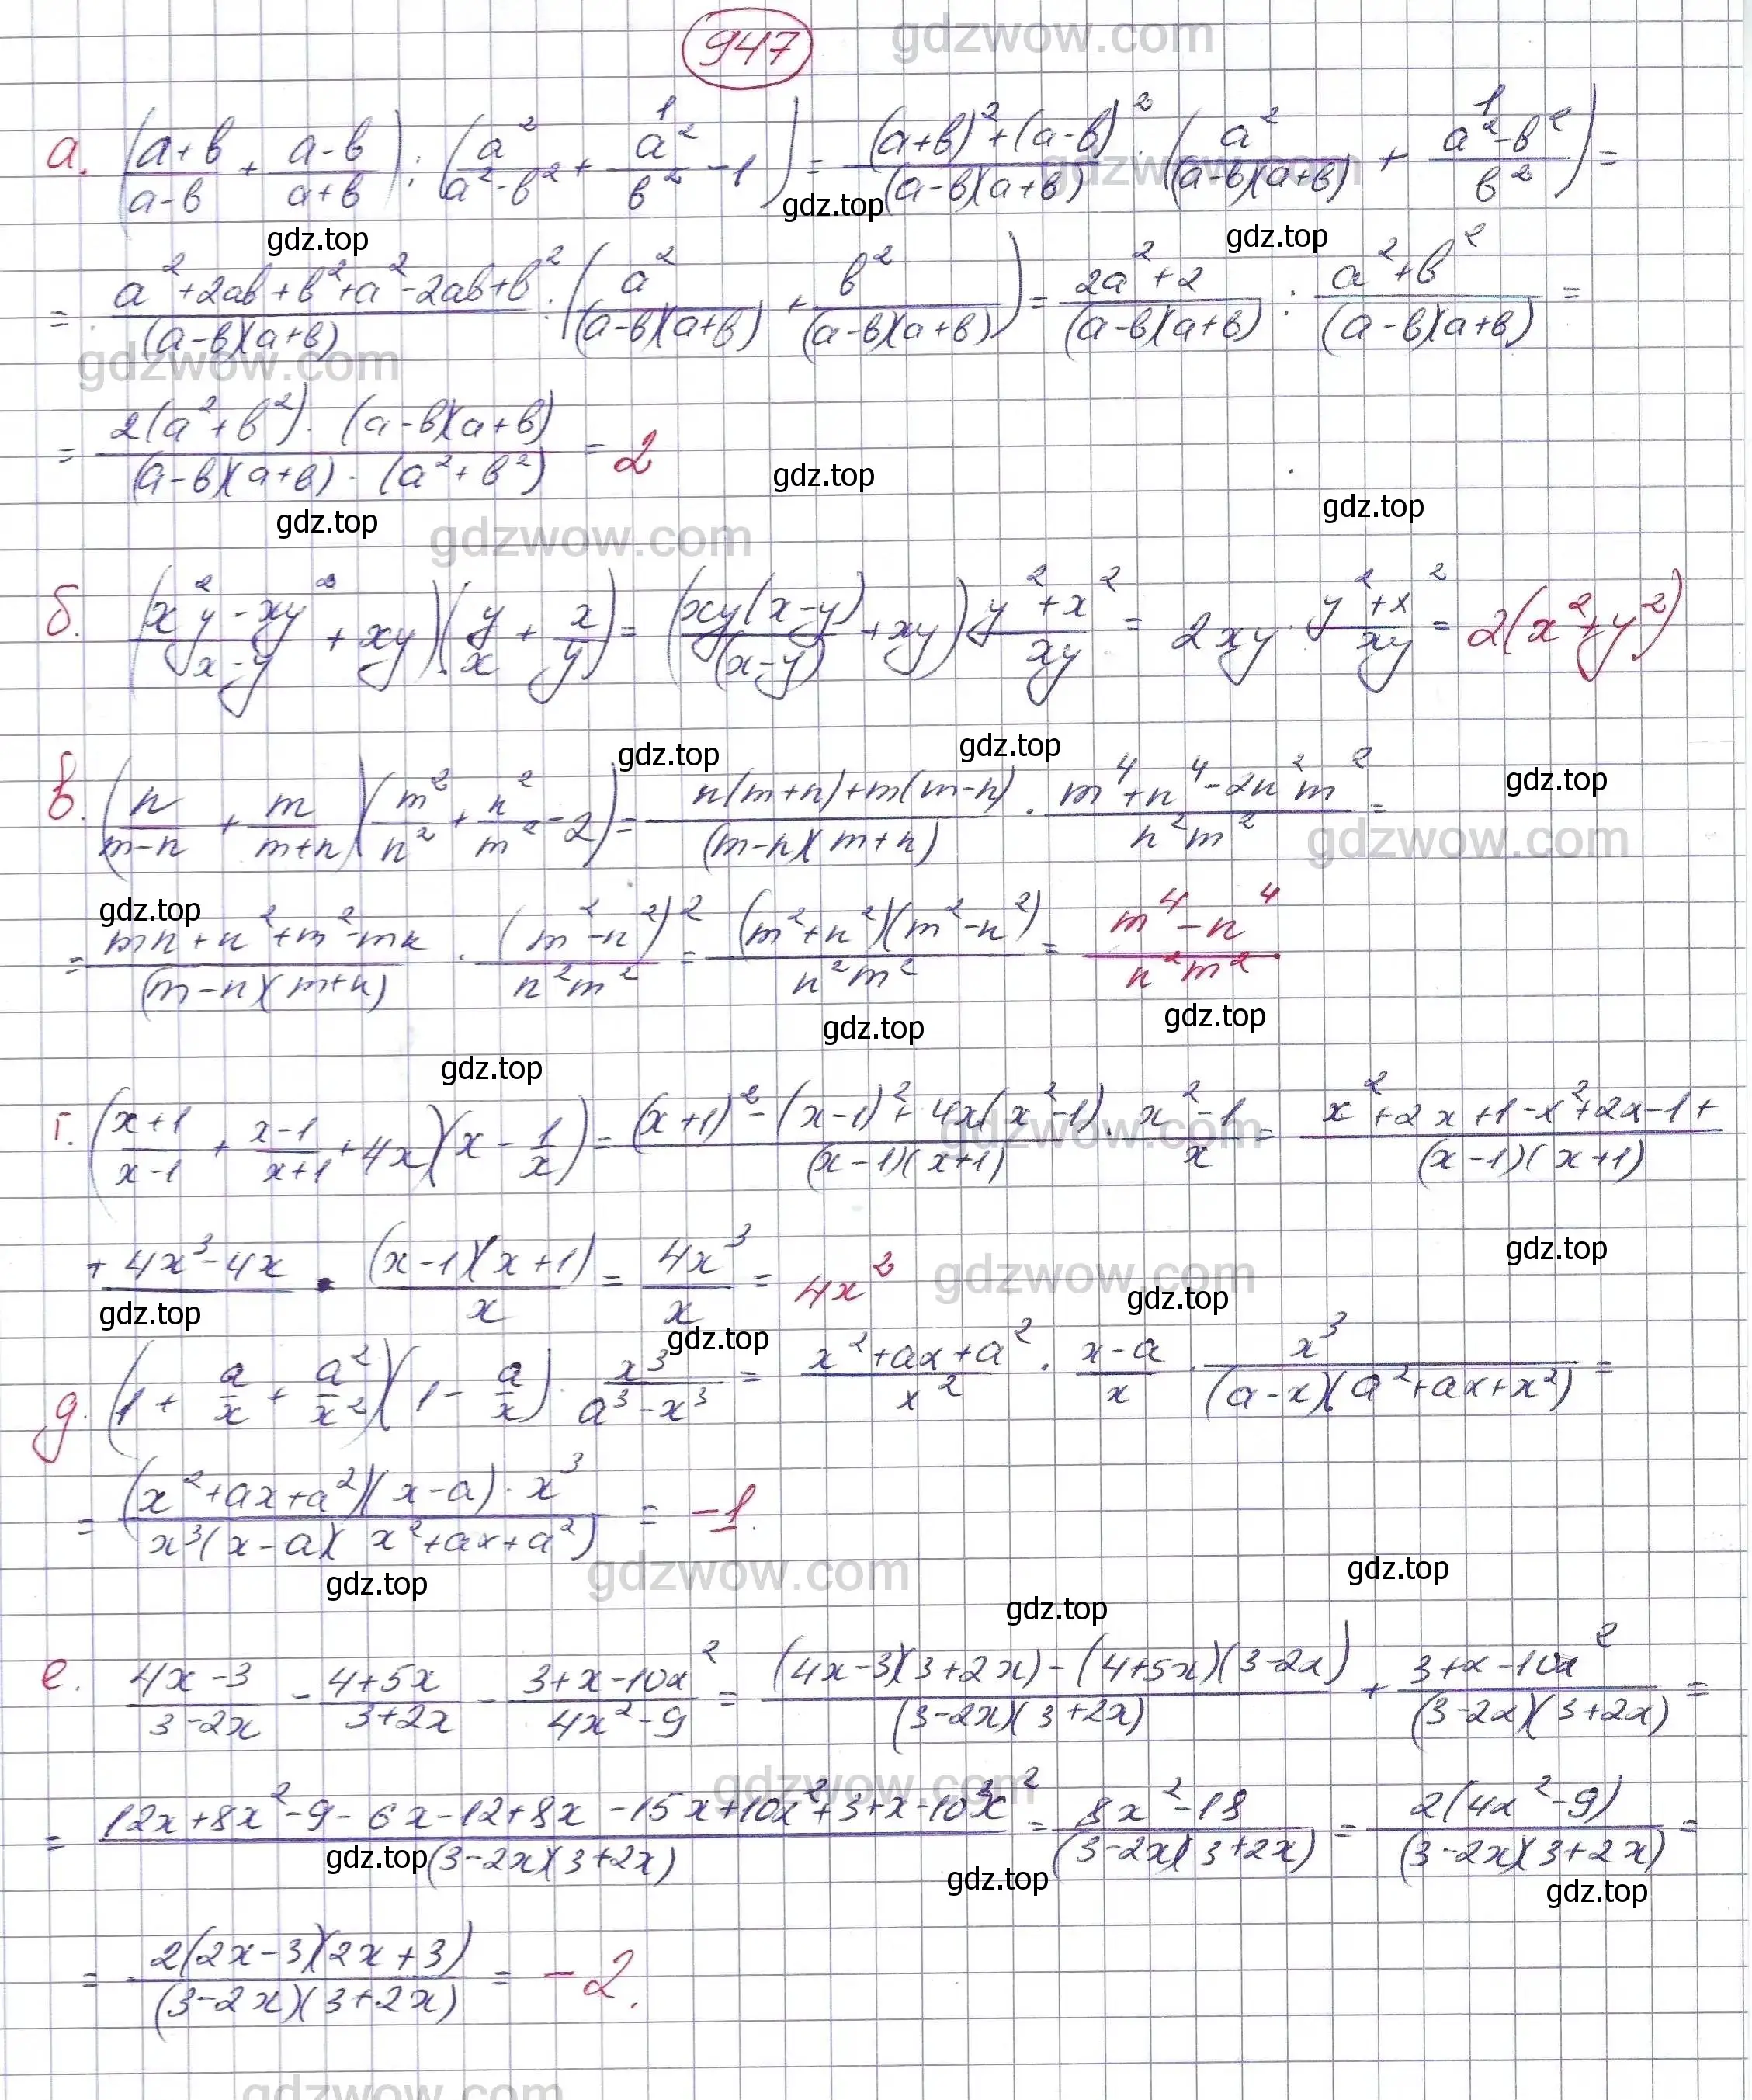 947
gdzwow.com
а. ((a+b)/(a-b) + (a-b)/(a+b)) : (a²/(a²-b²) + 1/(a²/b² - 1)) = ((a+b)²+(a-b)²)/((a-b)(a+b)) : (a²/((a-b)(a+b)) + 1/((a²-b²)/b²)) =
gdzwow.com
gdz.top gdz.top gdz.top
= (a²+2ab+b²+a²-2ab+b²)/((a-b)(a+b)) : (a²/((a-b)(a+b)) + b²/((a-b)(a+b))) = (2a²+2)/((a-b)(a+b)) : (a²+b²)/((a-b)(a+b)) =
gdzwow.com
= (2(a²+b²)·(a-b)(a+b))/((a-b)(a+b)·(a²+b²)) = 2
gdz.top gdz.top gdz.top
gdzwow.com
б. ((x²y-xy²)/(x-y) + xy)·(y/x + x/y) = (xy(x-y)/(x-y) + xy)·(y²+x²)/(xy) = 2xy·(y²+x²)/(xy) = 2(x²+y²)
gdz.top gdz.top gdz.top
в. (n/(m-n) + m/(m+n))(m²/n² + n²/m² - 2) = (n(m+n)+m(m-n))/((m-n)(m+n)) · (m⁴+n⁴-2n²m²)/(n²m²) =
gdzwow.com
gdz.top
= (mn+n²+m²-mn)/((m-n)(m+n)) · (m²-n²)²/(n²m²) = ((m²+n²)(m²-n²))/(n²m²) = (m⁴-n⁴)/(n²m²)
gdz.top gdz.top
gdz.top
г. ((x+1)/(x-1) + (x-1)/(x+1) + 4x)(x - 1/x) = ((x+1)²-(x-1)²+4x(x²-1))/((x-1)(x+1)) · (x²-1)/x = (x²+2x+1-x²+2x-1+)/((x-1)(x+1))
gdzwow.com
+4x³-4x · ((x-1)(x+1))/x = 4x³/x = 4x²
gdzwow.com
gdz.top gdz.top gdz.top gdz.top
д. (1 + a/x + a²/x²)(1 - a/x)·x³/(a³-x³) = (x²+ax+a²)/x² · (x-a)/x · x³/((a-x)(a²+ax+x²)) =
= ((x²+ax+a²)(x-a)·x³)/(x³(x-a)(x²+ax+a²)) = -1.
gdzwow.com
gdz.top gdz.top gdz.top
е. (4x-3)/(3-2x) - (4+5x)/(3+2x) - (3+x-10x²)/(4x²-9) = ((4x-3)(3+2x)-(4+5x)(3-2x))/((3-2x)(3+2x)) + (3+x-10x²)/((3-2x)(3+2x)) =
gdzwow.com
= (12x+8x²-9-6x-12+8x-15x+10x²+3+x-10x²)/((3-2x)(3+2x)) = (8x²-18)/((3-2x)(3+2x)) = 2(4x²-9)/((3-2x)(3+2x)) =
gdz.top gdz.top gdz.top
= 2(2x-3)(2x+3)/((3-2x)(3+2x)) = -2.
gdzwow.com